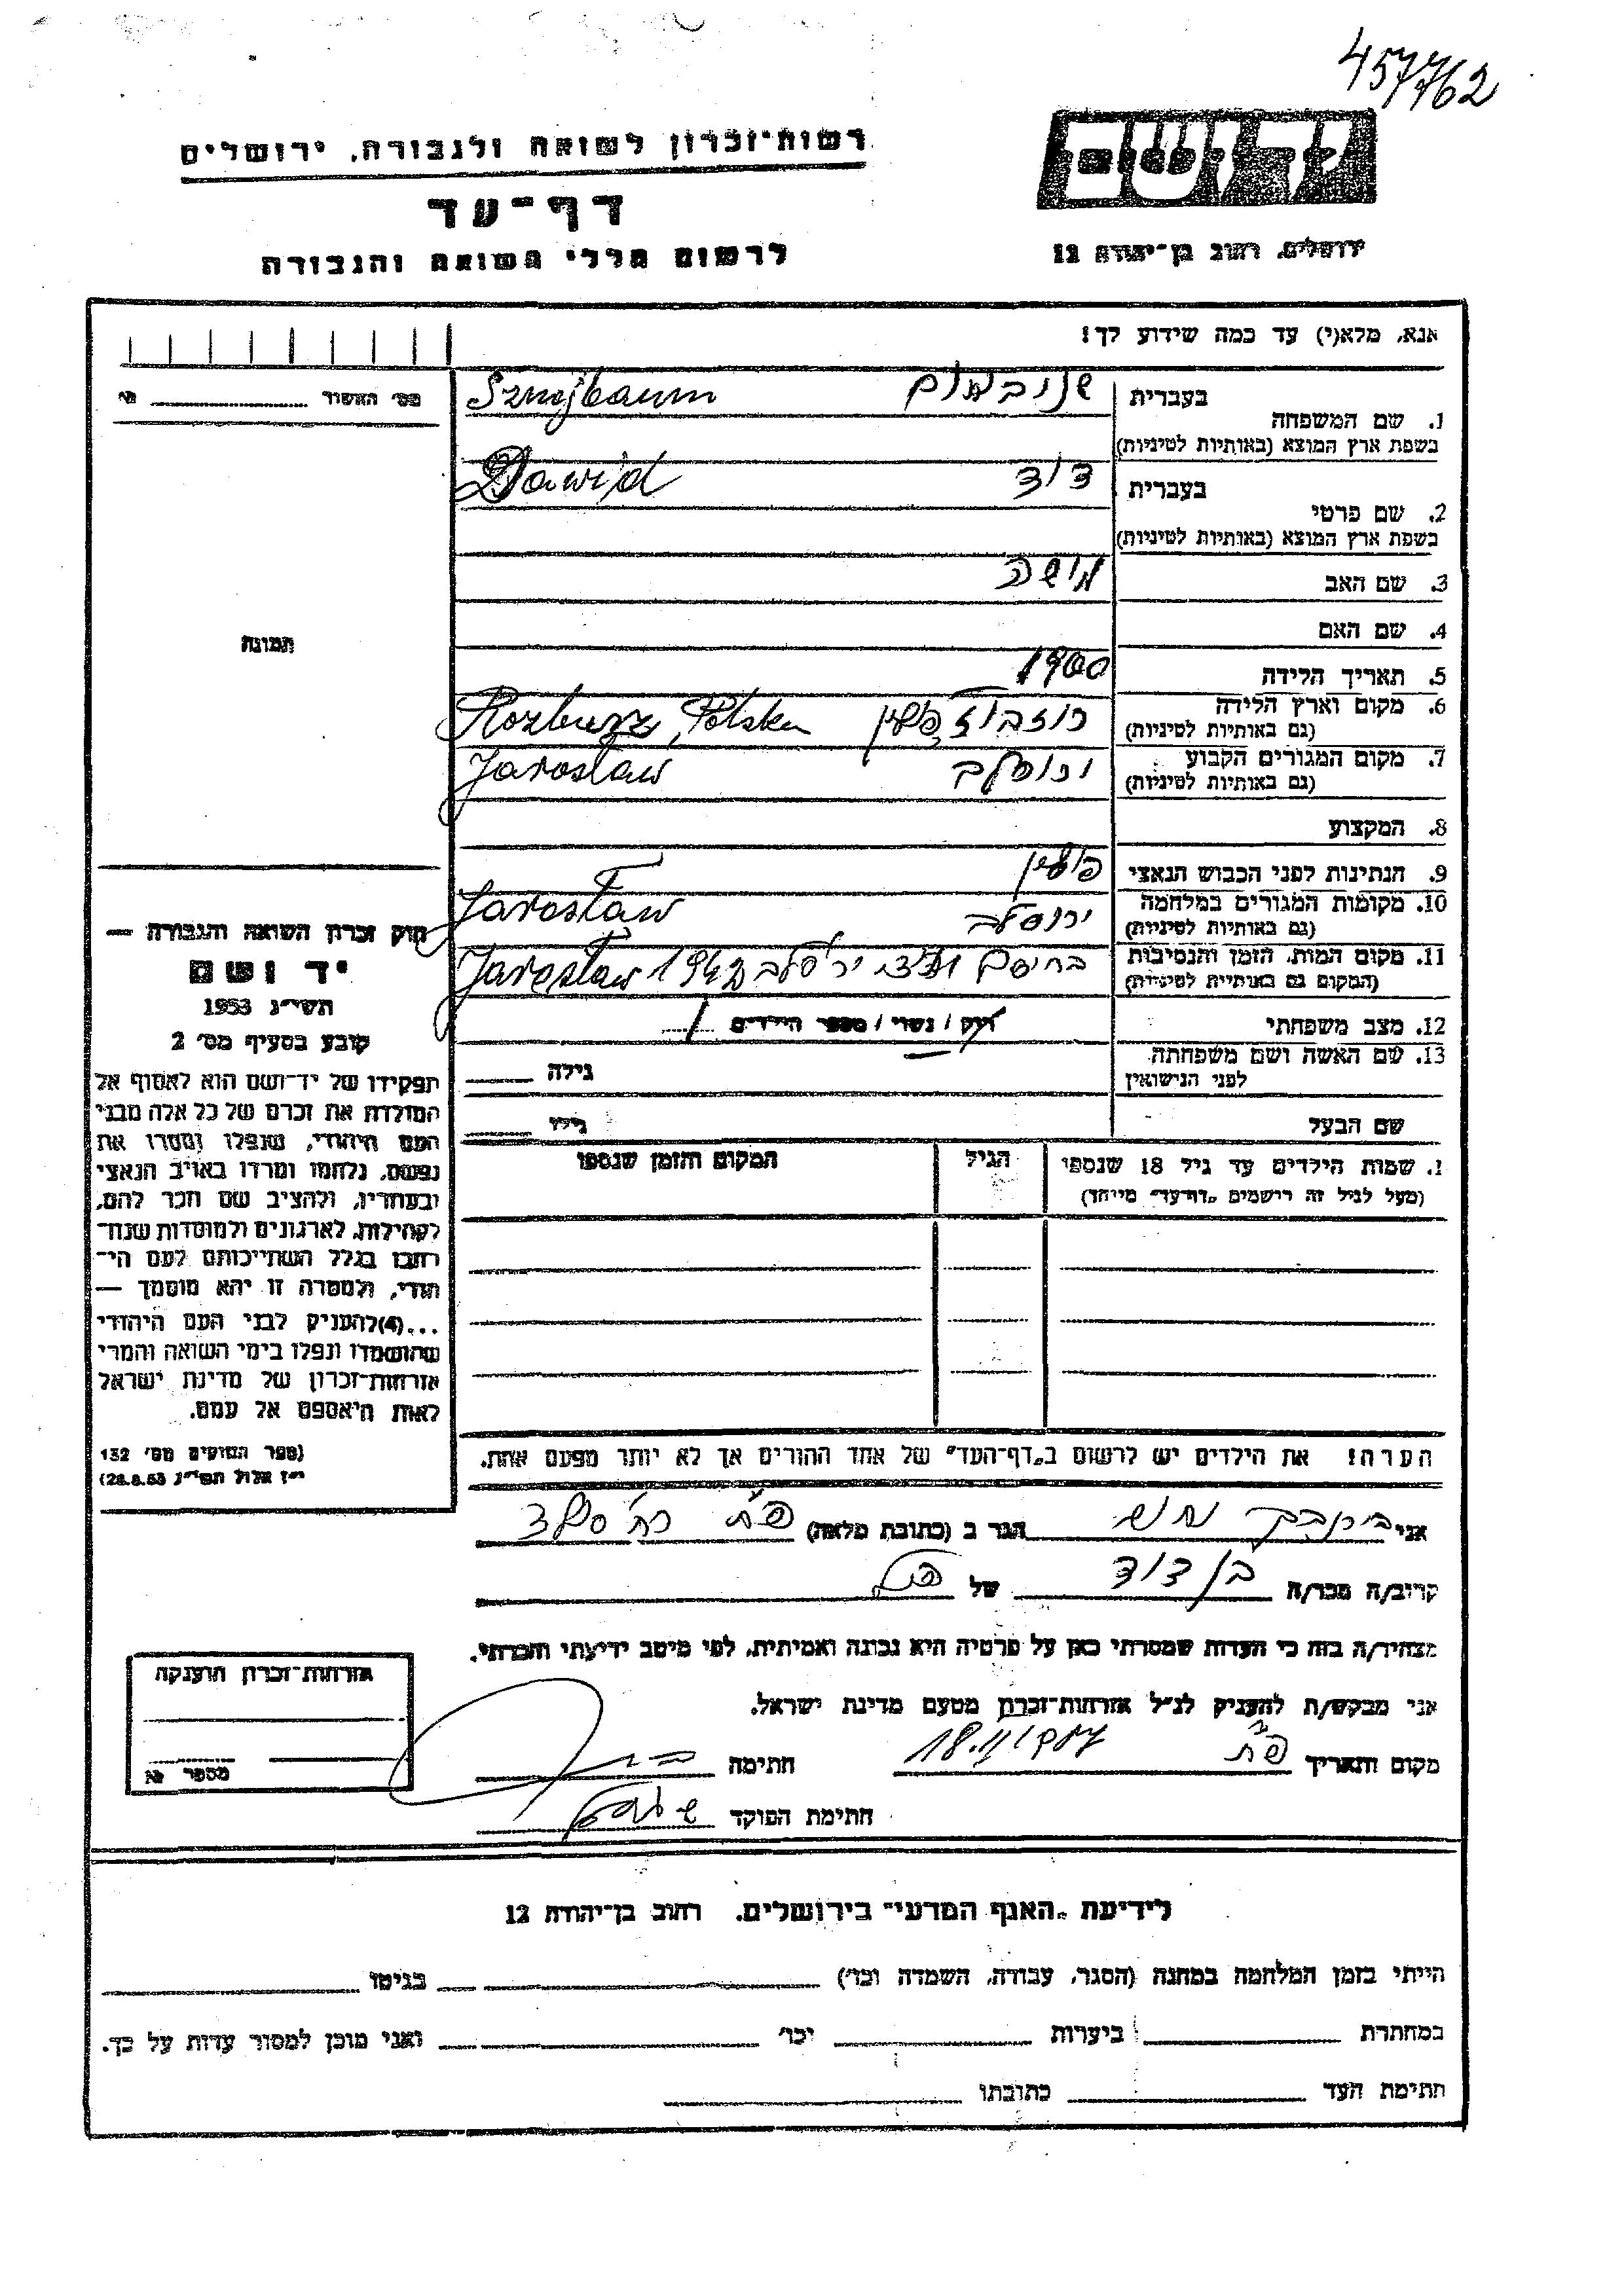 457762
רשות־זכרון לשואה ולגבורה, ירושלים
יד ושם
דף־עד
לרשום חללי השואה והגבורה
ירושלים, רחוב בן־יהודה 12
אנא, מלא(י) עד כמה שידוע לך!
מס׳ האשור
1. שם המשפחה
בעברית
Sznajbaum
בשפת ארץ המוצא (באותיות לטיניות)
2. שם פרטי
בעברית דוד
Dawid
בשפת ארץ המוצא (באותיות לטיניות)
3. שם האב
4. שם האם
5. תאריך הלידה 1900
6. מקום וארץ הלידה פולין , Polska
(גם באותיות לטיניות)
7. מקום המגורים הקבוע Jarosław
(גם באותיות לטיניות)
8. המקצוע
9. הנתינות לפני הכבוש הנאצי פולין
10. מקומות המגורים במלחמה ירוסלב Jarosław
(גם באותיות לטיניות)
11. מקום המות, הזמן והנסיבות Jarosław
(המקום גם באותיות לטיניות)
12. מצב משפחתי רוק / נשוי / מספר הילדים
13. שם האשה ושם משפחתה גילה
לפני הנישואין
שם הבעל גילו
שמות הילדים עד גיל 18 שנספו הגיל המקום והזמן שנספו
(מעל לגיל זה רישמים „דף־עד״ מיוחד)
הערה! את הילדים יש לרשום ב„דף־העד״ של אחד ההורים אך לא יותר מפעם אחת.
תמונה
חוק זכרון השואה והגבורה —
יד ושם
תשי״ג 1953
קובע בסעיף מס׳ 2
תפקידו של יד־ושם הוא לאסוף אל
המולדת את זכרם של כל אלה מבני
העם היהודי, שנפלו ומסרו את
נפשם, נלחמו ומרדו באויב הנאצי
ובעוזריו, ולהציב שם וזכר להם,
לקהילות, לארגונים ולמוסדות שנח־
רחבו בגלל השתייכותם לעם הי־
הודי, ולמטרה זו יהא מוסמך —
...(4)להעניק לבני העם היהודי
שהושמדו ונפלו בימי השואה והמרי
אזרחות־זכרון של מדינת ישראל
לאות היאספם אל עמם.
(ספר החוקים מס׳ 132
י״ז אלול תשי״ג 28.8.53)
אני הגר ב (כתובת מלאה) פ״ת
קרוב/ה מכר/ה בן דוד של
מצהיר/ה בזה כי העדות שמסרתי כאן על פרטיה היא נכונה ואמיתית, לפי מיטב ידיעתי והכרתי.
אני מבקש/ת להעניק לנ״ל אזרחות־זכרון מטעם מדינת ישראל.
מקום ותאריך פ״ת חתימה
חתימת הפוקד
אזרחות־זכרון הוענקה
מספר
לידיעת „האגף המדעי״ בירושלים, רחוב בן־יהודה 12
הייתי בזמן המלחמה במחנה (הסגר, עבודה, השמדה וכו׳) בגיטו
במחתרת ביערות יכו׳ ואני מוכן למסור עדות על כך.
חתימת העד כתובתו